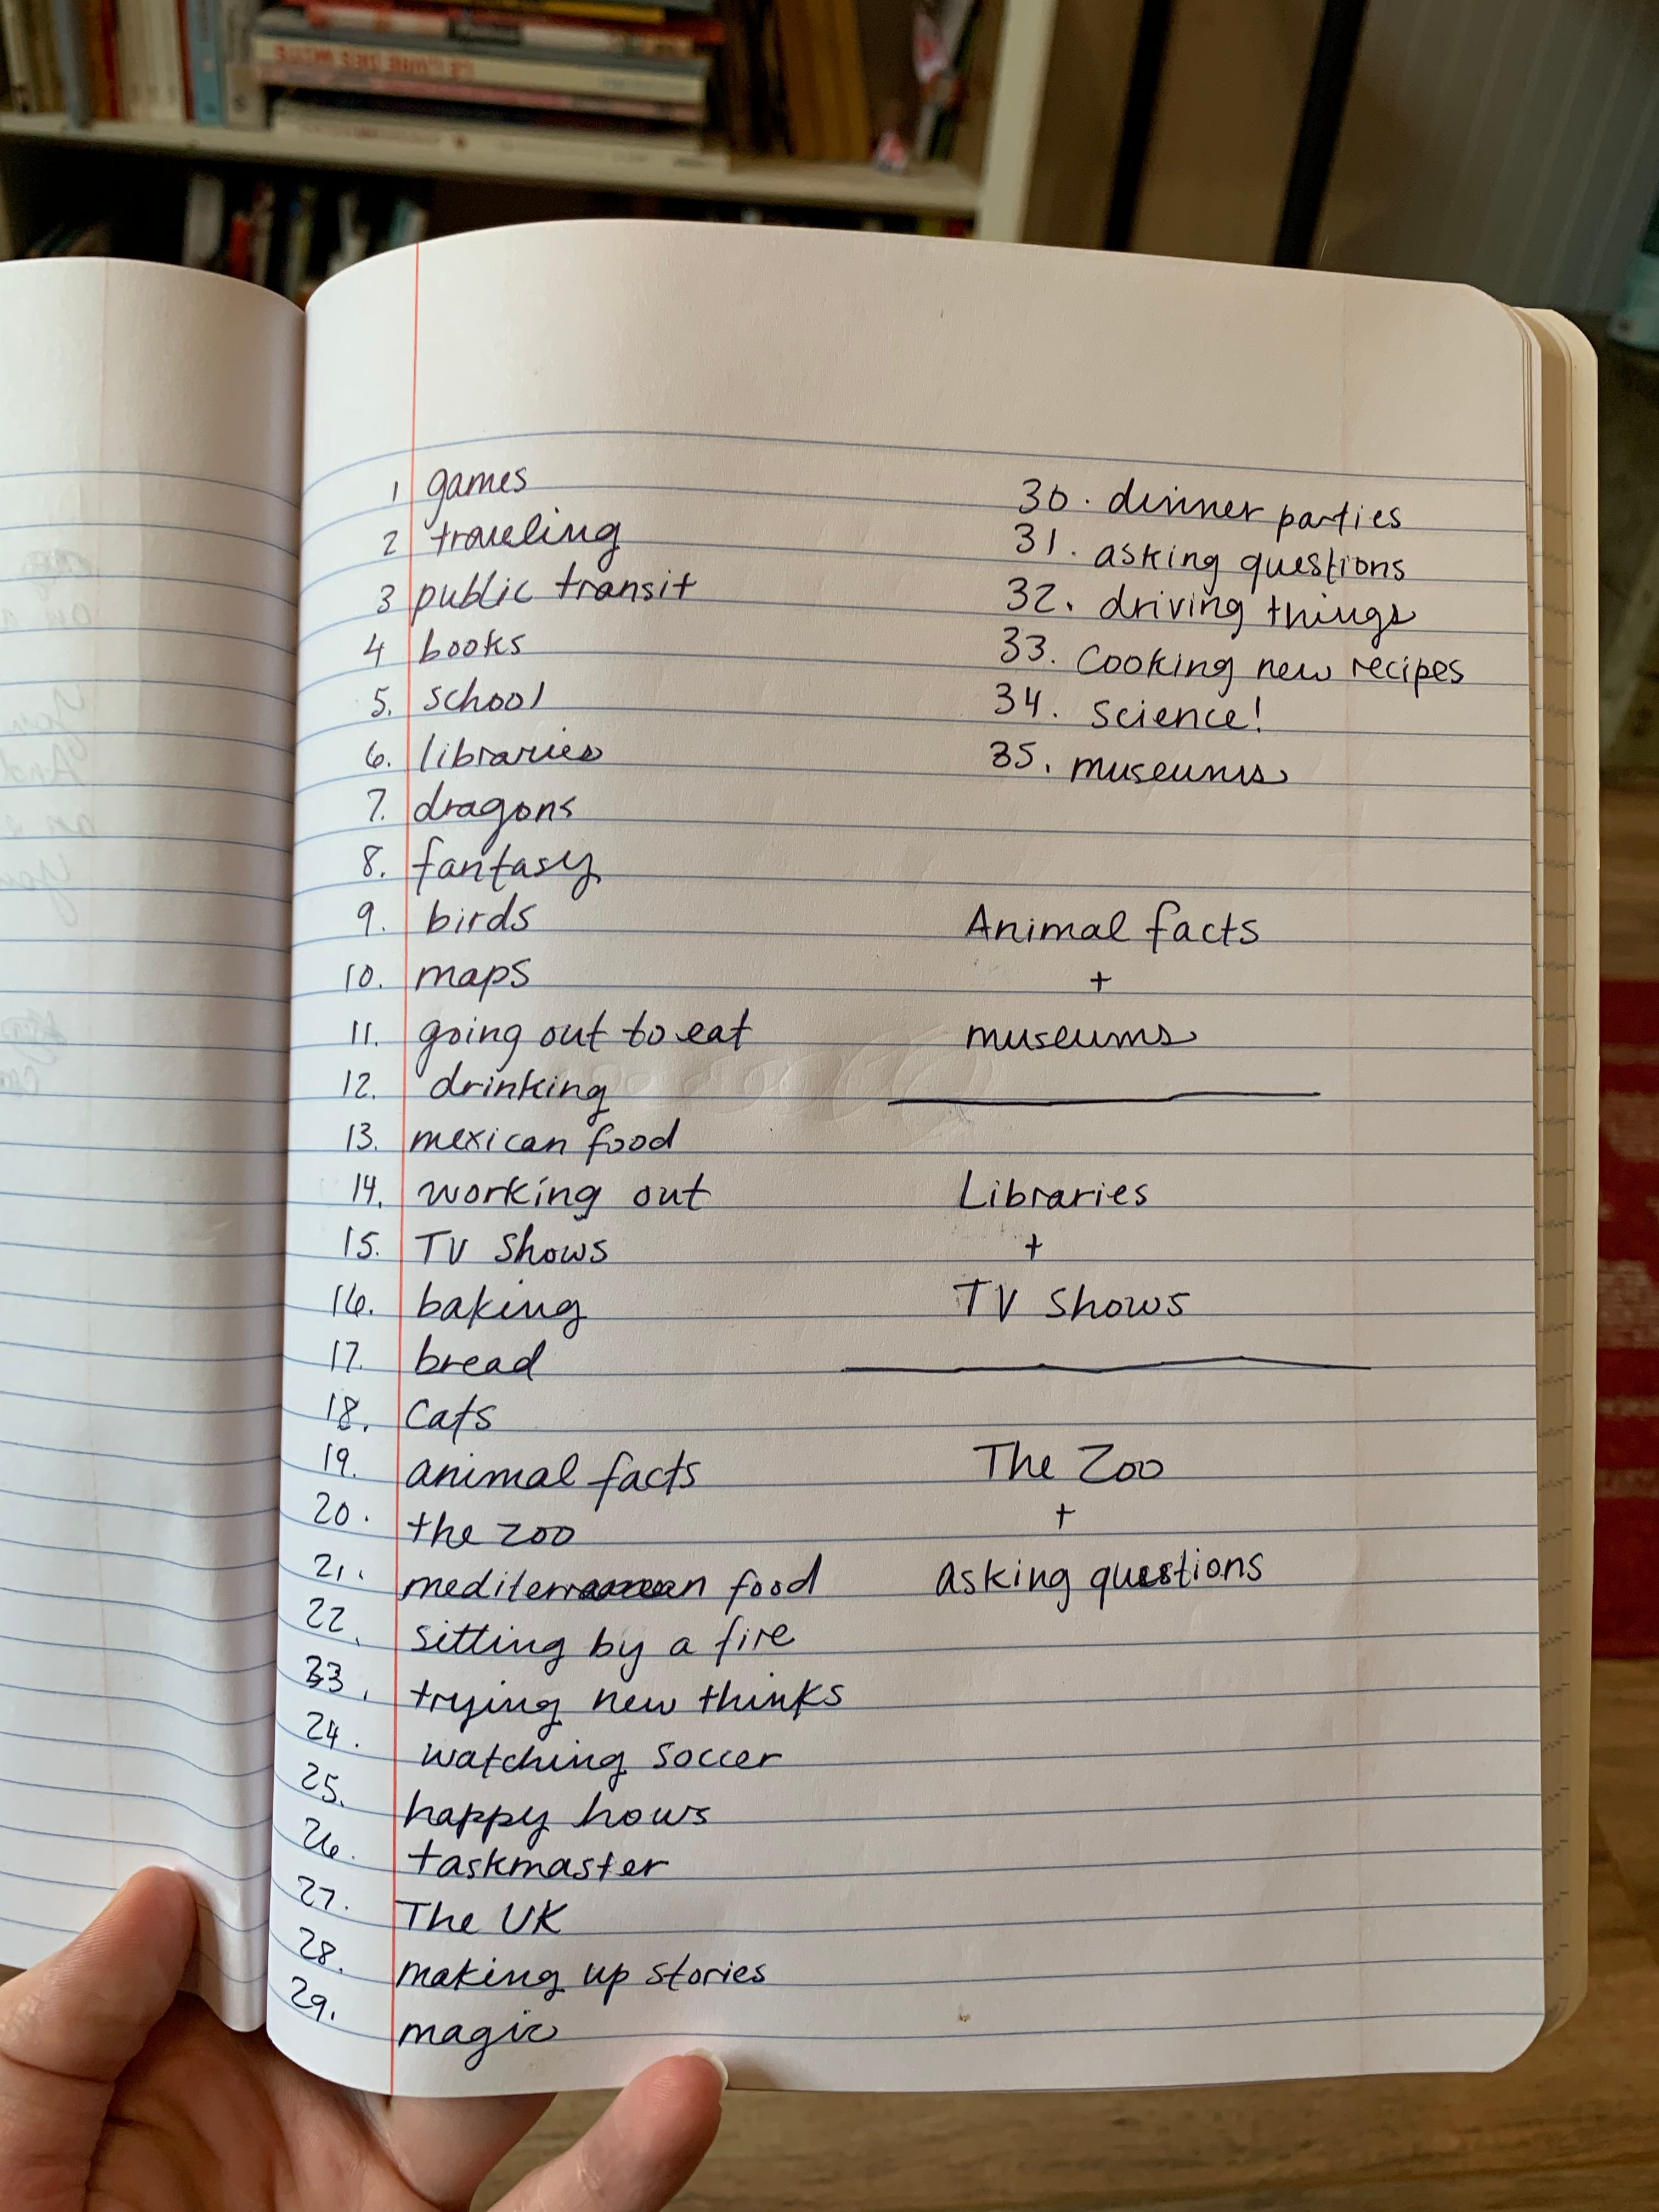 LE LIVRE DES MOTS
1 games
2 traveling
3 public transit
4 books
5. school
6. libraries
7. dragons
8. fantasy
9. birds
10. maps
11. going out to eat
12. drinking
13. mexican food
14. working out
15. TV Shows
16. baking
17. bread
18. Cats
19. animal facts
20. the zoo
21. mediterranean food
22. sitting by a fire
33. trying new thinks
24. watching soccer
25. happy hours
26. taskmaster
27. The UK
28. making up stories
29. magic
30. dinner parties
31. asking questions
32. driving things
33. Cooking new recipes
34. Science!
35. museums
Animal facts
+
museums
Libraries
+
TV Shows
The Zoo
+
asking questions